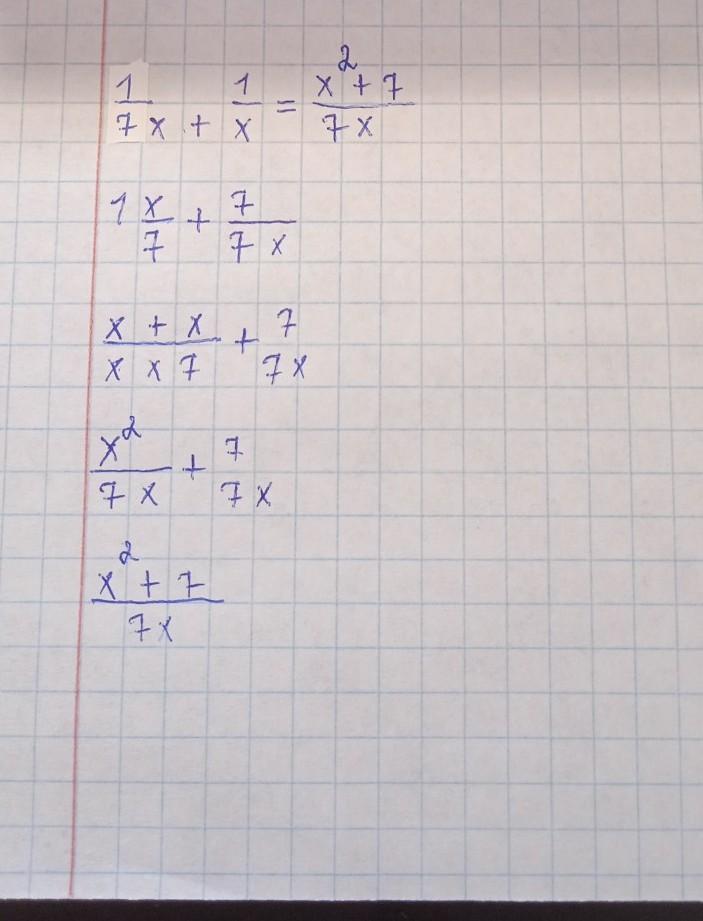 1/7 x + 1/x = x²+7/7x
1 x/7 + 7/7x
x + x/x x 7 + 7/7x
x²/7x + 7/7x
x²+7/7x